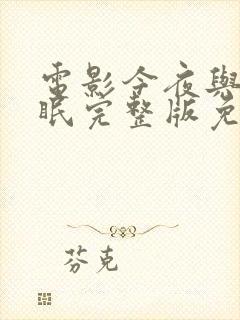 電影今夜與
眠完整版免
芬克